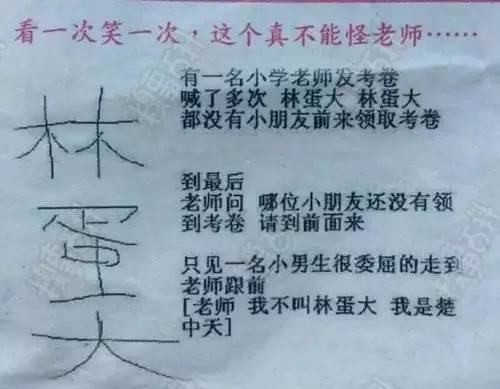 看一次笑一次，这个真不能怪老师……
林
蛋
大
有一名小学老师发考卷
喊了多次 林蛋大 林蛋大
都没有小朋友前来领取考卷
到最后
老师问 哪位小朋友还没有领
到考卷 请到前面来
只见一名小男生很委屈的走到
老师跟前
[老师 我不叫林蛋大 我是楚
中天]